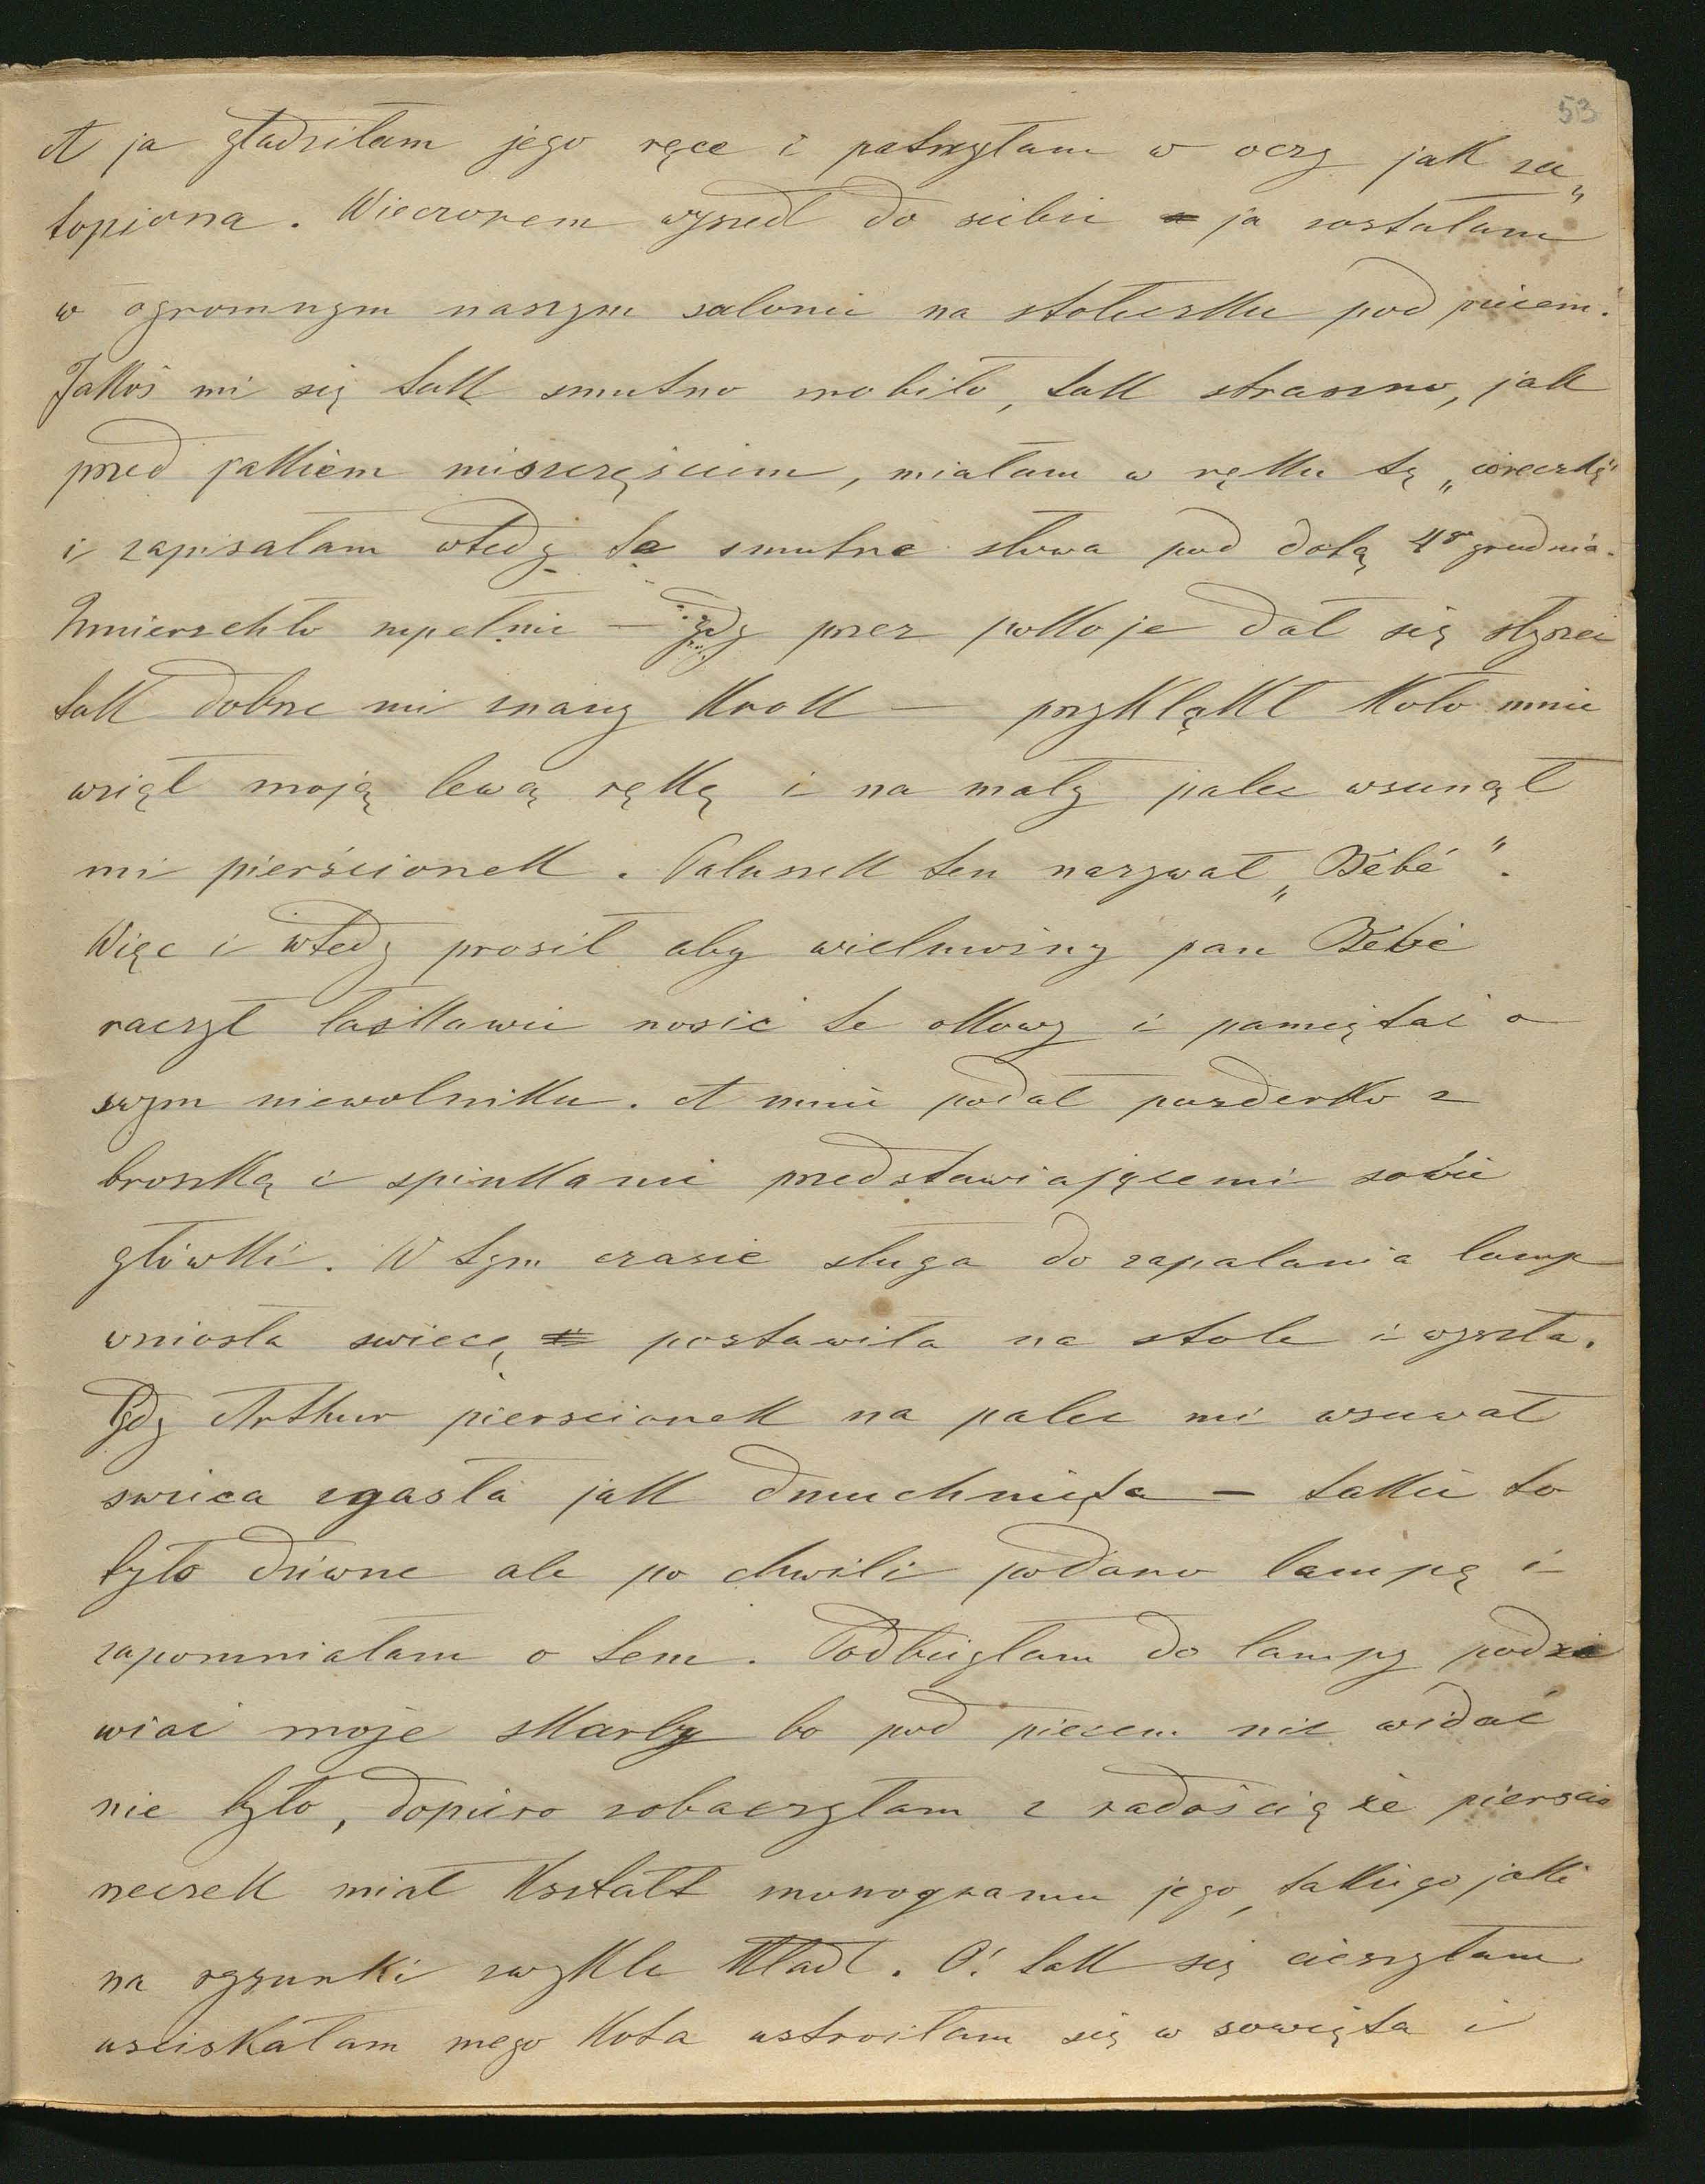 53
A ja gładziłam jego ręce i patrzyłam w oczy jak za„
topiona. Wieczorem wyszedł do siebie a ja zostałam
w ogromnym naszym salonie na stołeczku pod piecem.
Jakoś mi się tak smutno zrobiło, tak straszno, jak
przed jakiem nieszczęściem, miałam w ręku tę „córeczkę"
i zapisałam wtedy te smutne słowa pod datą 4go grudnia.
Zmierzchło zupełnie — gdy przez pokoje dał się słyszeć
tak dobrze mi znany krok — przyklękł koło mnie
wziął moją lewą rękę i na mały palec wsunął
mi pierścionek. Paluszek ten nazywał „Bébé".
Więc i wtedy prosił aby wielmożny pan Bébé
raczył łaskawie nosić te okowy i pamiętać o
swym niewolniku. A mnie podał puzderko z
broszką i spinkami przedstawiającemi sowie
główki. W tym czasie sługa do zapalania lamp
wniosła swiecę postawiła na stole i wyszła.
Gdy Arthur pierscionek na palec mi wsuwał
swieca zgasła jak dmuchnięta — takie to
było dziwne ale po chwili podano lampę i
zapomniałam o tem. Podbiegłam do lampy podzi
wiać moje skarby bo pod piecem nic widać
nie było, dopiero zobaczyłam z radością że pierscio
neczek miał kształt monogramu jego, takiego jaki
na rysunki zwykle kładł. O! tak się cieszyłam
usciskałam mego kota ustroiłam się w sowięta i